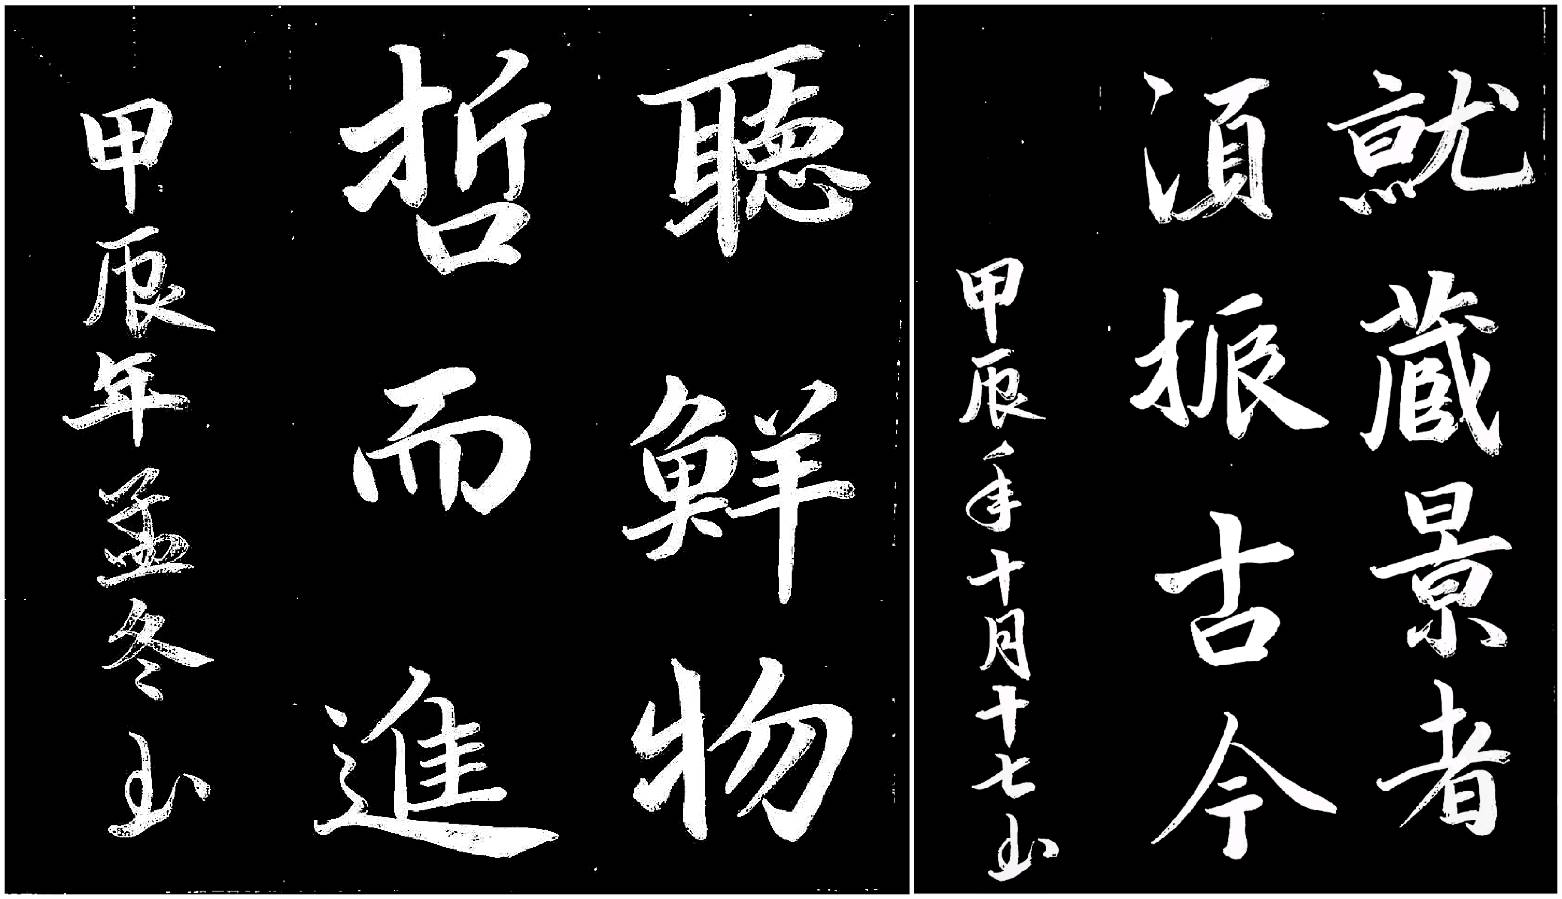 就藏景者
須振古今
甲辰年十月十七
聽鮮物
哲而進
甲辰年孟冬